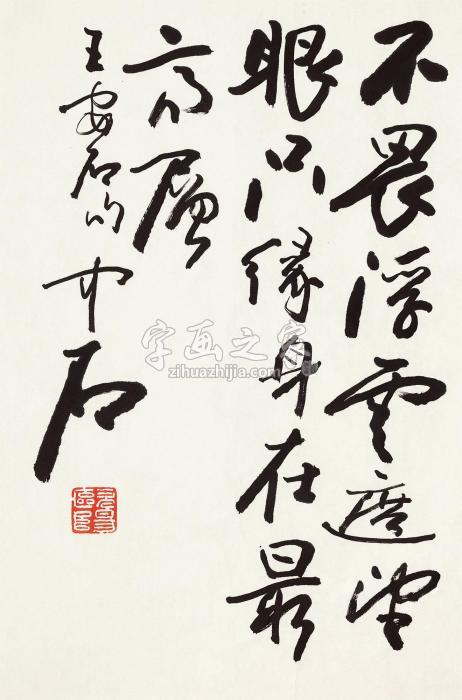 不畏浮雲遮望
眼只緣身在最
高層
王安石句 中石
字画之家
zihuazhijia.com